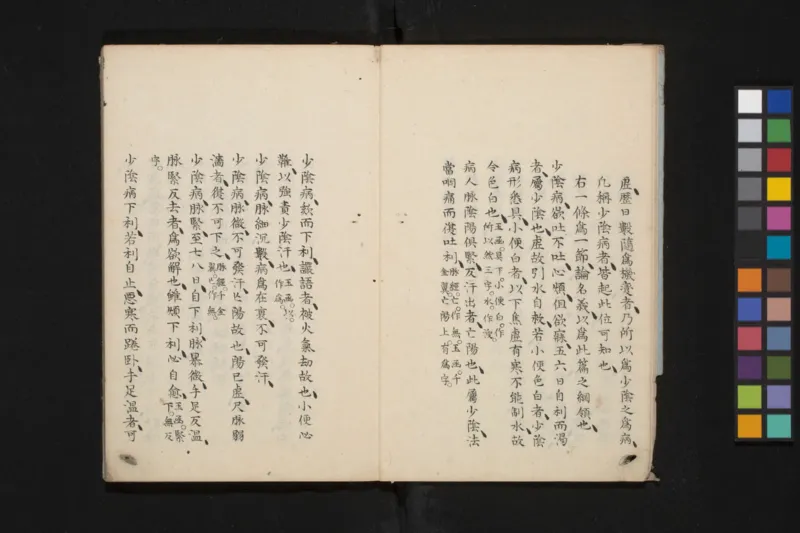 虛歷日數隨爲機變者乃所以爲少陰之爲病
凡稱少陰病者皆起此位可知也
右一條爲一節論名義以爲此篇之綱領也
少陰病欲吐不吐心煩但欲寐五六日自利而渴
者屬少陰也虛故引水自救若小便色白者少陰
病形悉具小便白者以下焦虛有寒不能制水故
令色白也
病人脉陰陽俱緊反汗出者亡陽也此屬少陰法
當咽痛而復吐利
少陰病欬而下利讝語者被火氣劫故也小便必
難以強責少陰汗也
少陰病脉細沉數病爲在裏不可發汗
少陰病脉微不可發汗亡陽故也陽已虛尺脉弱
濇者復不可下之
少陰病脉緊至七八日自下利脉暴微手足反溫
脉緊反去者爲欲解也雖煩下利必自愈
字
少陰病下利若利自止惡寒而踡卧手足溫者可